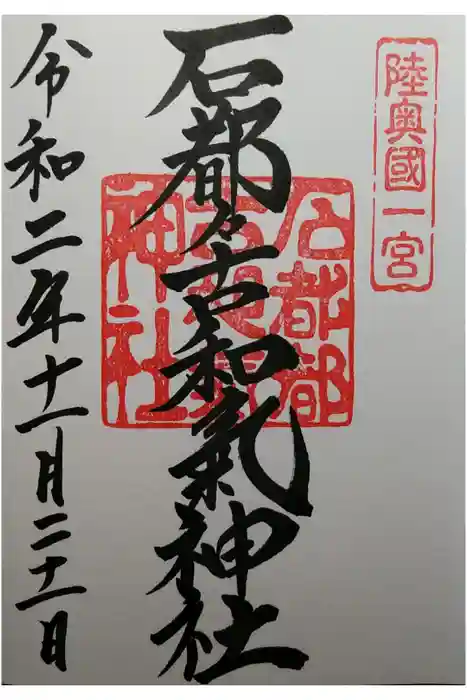 陸奥國一宮
石都々古和氣神社
石都都
神社
令和二年十一月二十一日